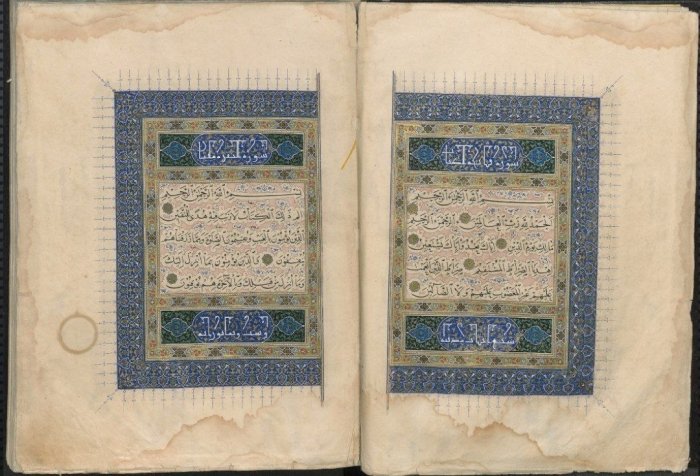 سورة فاتحة
بسم الله الرحمن الرحيم
الحمد لله رب العالمين الرحمن الرحيم
مالك يوم الدين اياك نعبد واياك نستعين
اهدنا الصراط المستقيم صراط الذين انعمت
عليهم غير المغضوب عليهم ولا الضالين
سبع آيات
سورة البقرة مائتان
بسم الله الرحمن الرحيم
الم ذلك الكتاب لا ريب فيه هدى للمتقين
الذين يؤمنون بالغيب ويقيمون الصلوة ومما رزقناهم
ينفقون والذين يؤمنون بما انزل اليك
وما انزل من قبلك وبالآخرة هم يوقنون
وست وثمانون آية